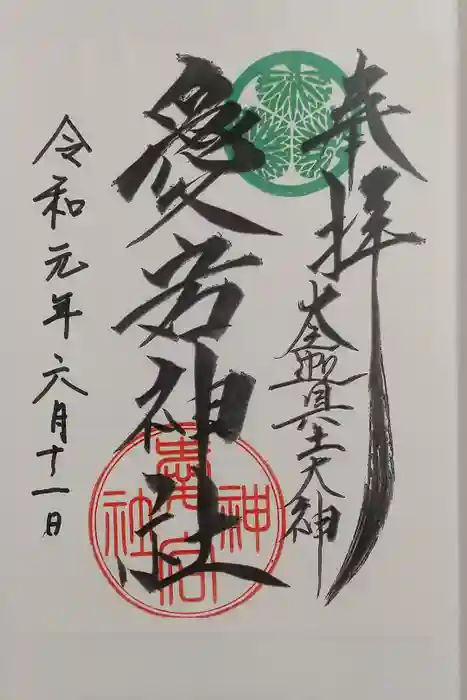 奉拝
大神
愛宕神社
愛宕神社
令和元年六月十一日